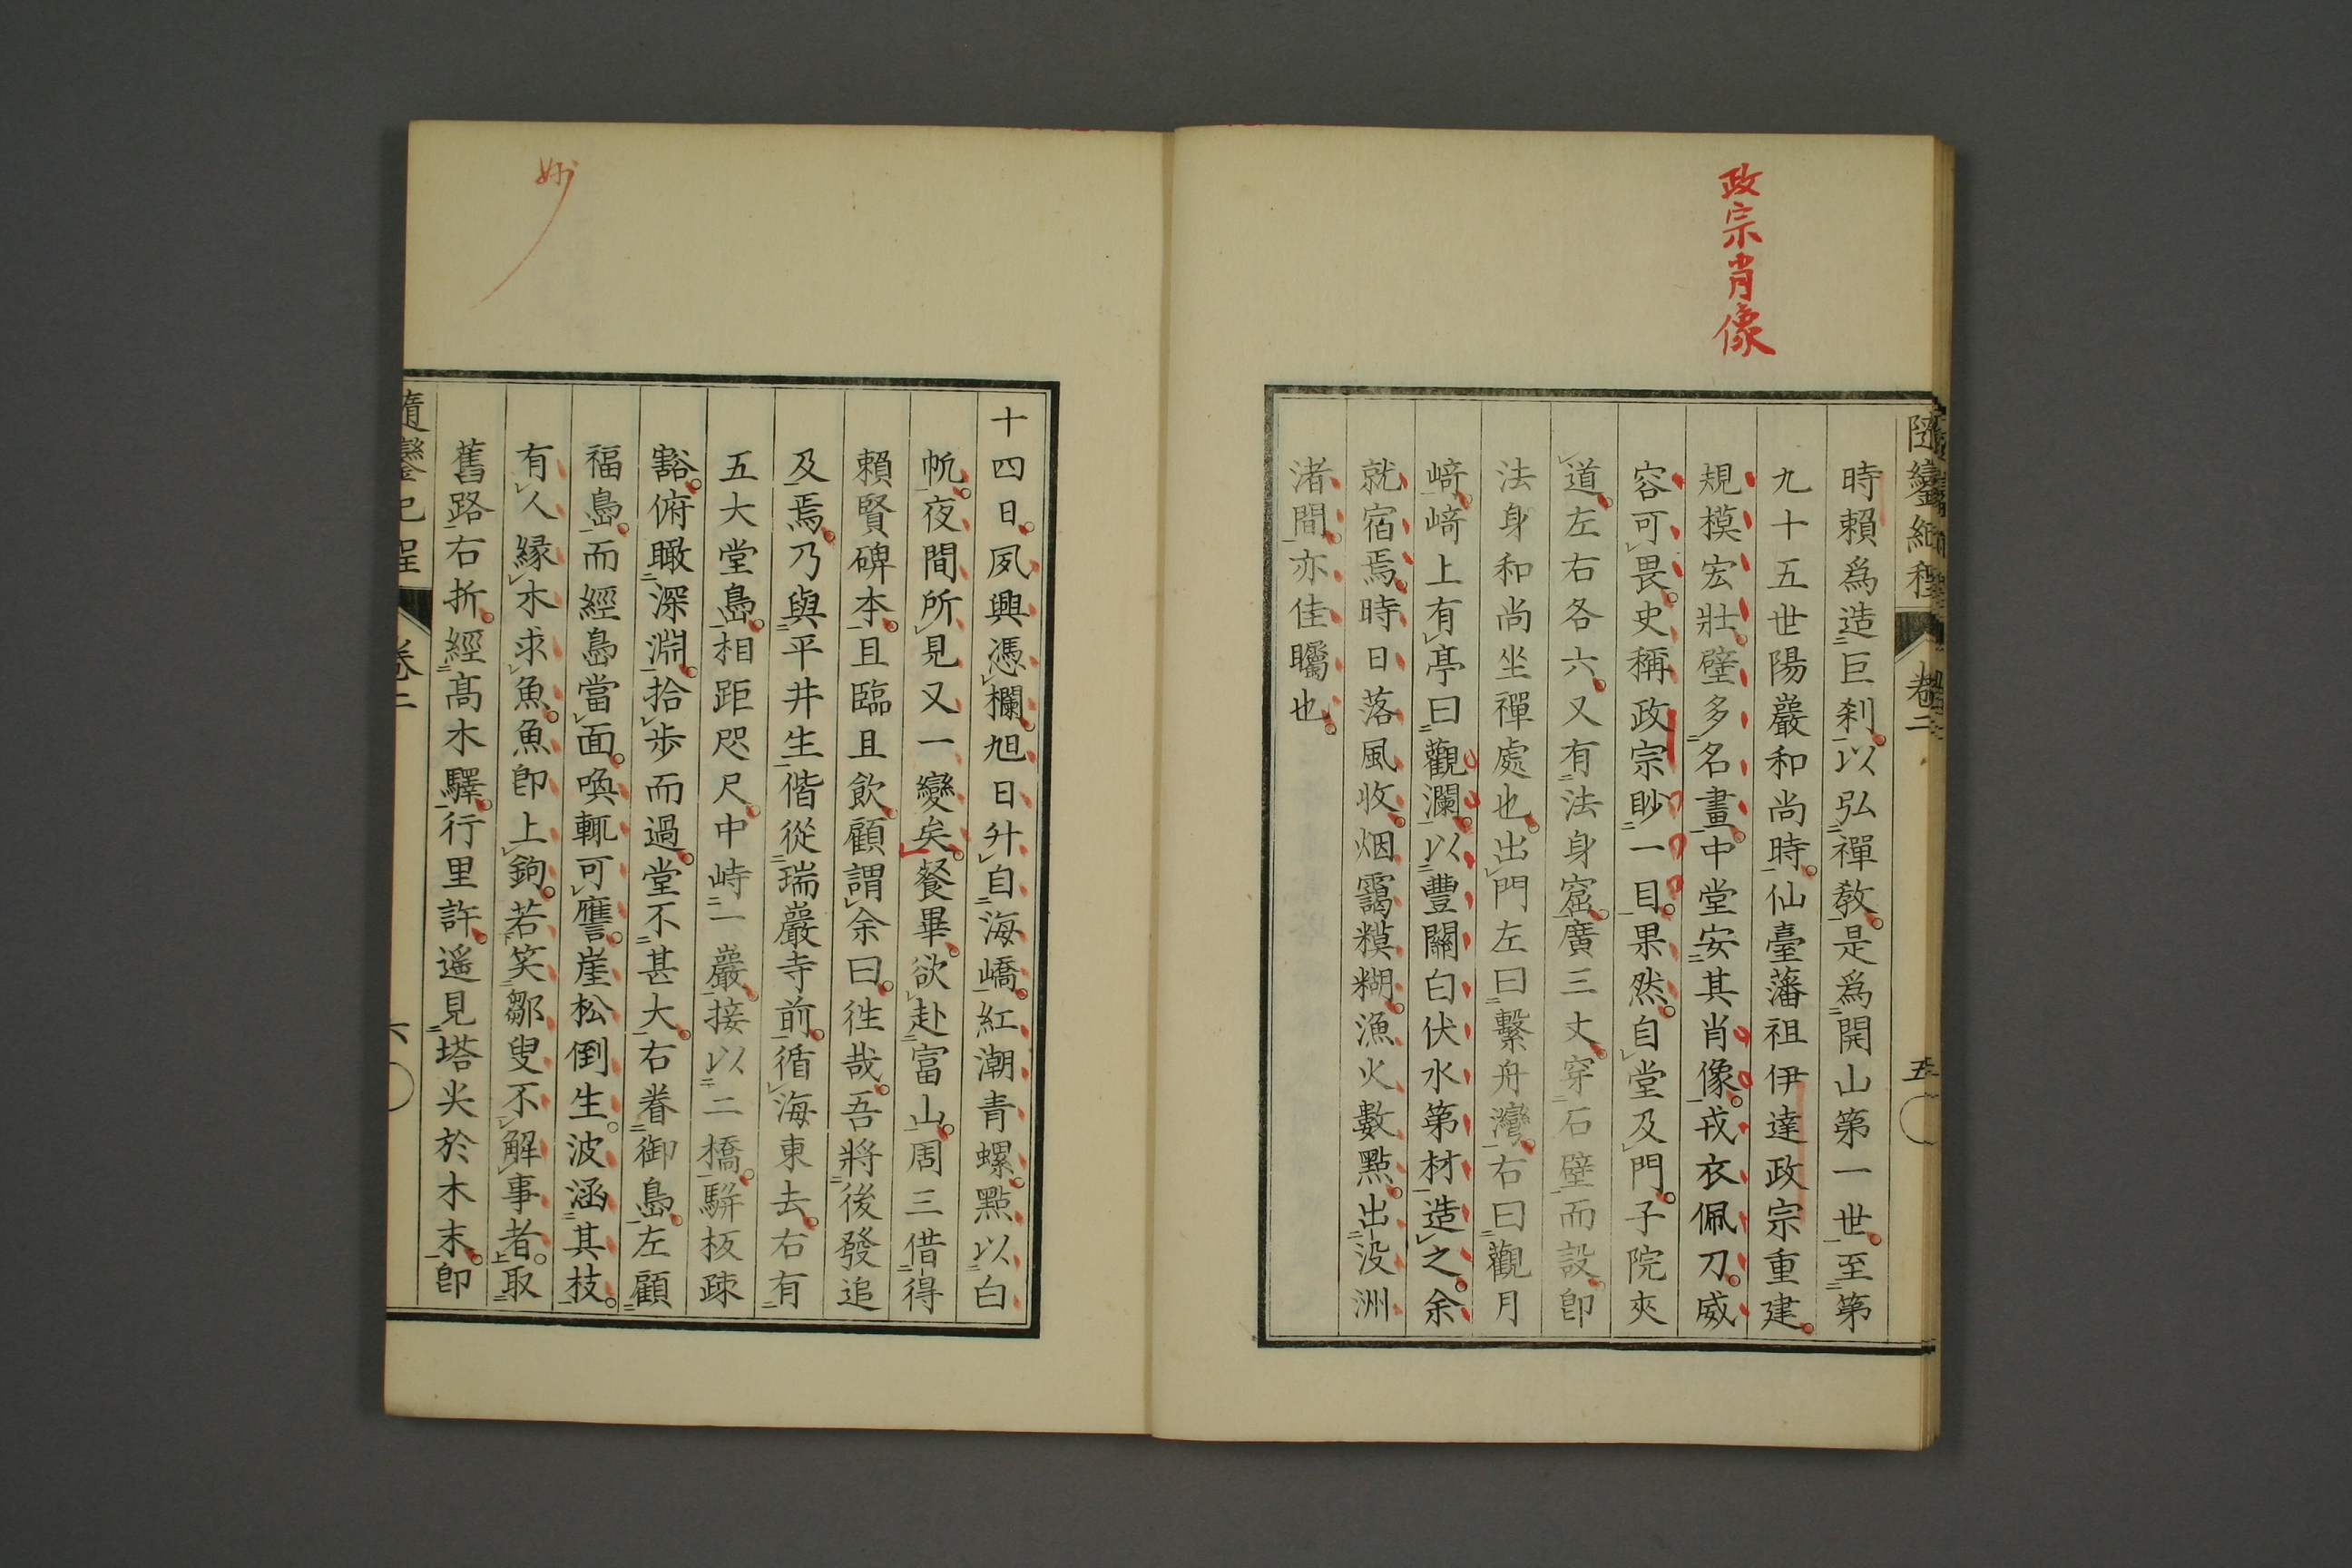 政宗肖像
隨鑾紀程
卷二
五
時賴爲造巨刹。以弘禪教。是爲開山第一世。至第
九十五世陽巖和尚時。仙臺藩祖伊達政宗重建。
規模宏壯。壁多名畫。中堂安其肖像。戎衣佩刀。威
容可畏。史稱政宗眇一目。果然。自堂及門。子院夾
道。左右各六。又有法身窟。廣三丈。穿石壁而設。卽
法身和尚坐禪處也。出門左曰繫舟灣。右曰觀月
崎。崎上有亭曰觀瀾。以豐關白伏水第材造之。余
就宿焉。時日落風收。烟靄糢糊。漁火數點。出沒洲
渚間。亦佳矚也。
妙
十四日。夙興憑欄。旭日升自海嶠。紅潮青螺。點以白
帆。夜間所見又一變矣。餐畢。欲赴富山。周三借得
賴賢碑本。且臨且飲。顧謂余曰。徃哉。吾將後發追
及焉。乃與平井生偕從瑞巖寺前。循海東去。右有
五大堂島。相距咫尺。中峙一巖。接以二橋。騈板疎
豁。俯瞰深淵。拾步而過。堂不甚大。右眷御島。左顧
福島。而經島當面。喚輒可譍。崖松倒生。波涵其枝。
有人緣木求魚。魚卽上鉤。若笑鄒叟不解事者。取
舊路右折。經高木驛。行里許。遙見塔尖於木末。卽
隨鑾紀程
卷二
六